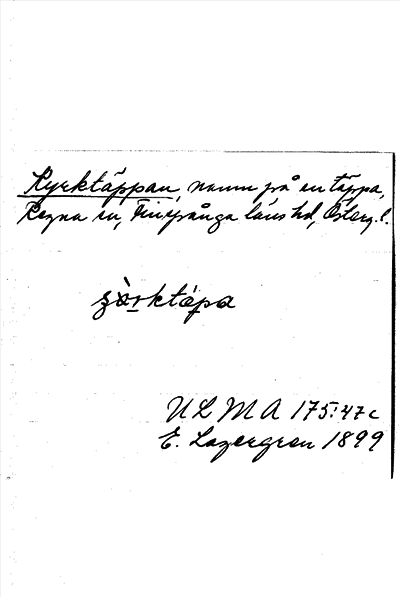 Kyrktäppan, namn på en täppa,
Regna sn, Finspånga läns hd, Österg. l.
ʒòrktápa
U L M A 175:47c
E. Lagergren 1899